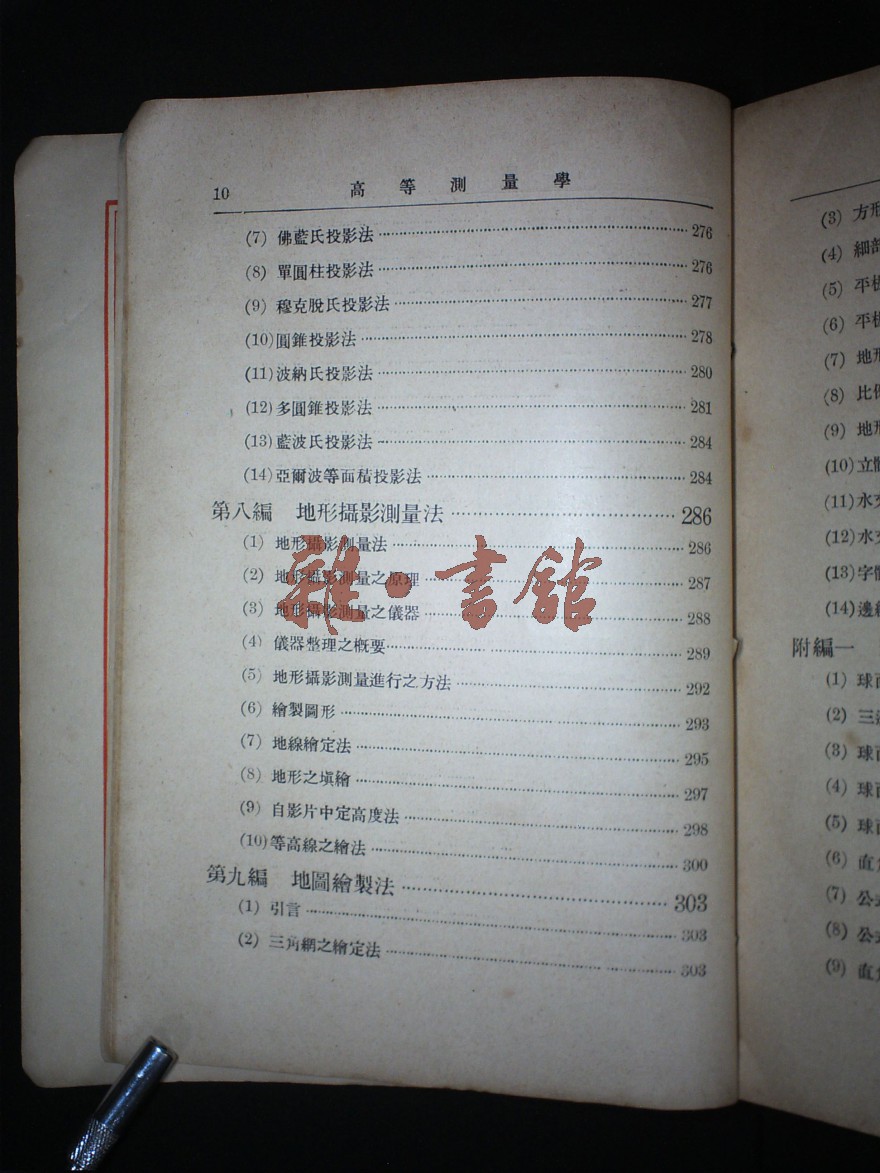 10 高等測量學
(7) 佛藍氏投影法 276
(8) 單圓柱投影法 276
(9) 穆克脫氏投影法 277
(10) 圓錐投影法 278
(11) 波納氏投影法 280
(12) 多圓錐投影法 281
(13) 藍波氏投影法 284
(14) 亞爾波等面積投影法 284
第八編 地形攝影測量法 286
(1) 地形攝影測量法 286
(2) 地形攝影測量之原理 287
(3) 地形攝影測量之儀器 288
(4) 儀器整理之概要 289
(5) 地形攝影測量進行之方法 292
(6) 繪製圖形 293
(7) 地線繪定法 295
(8) 地形之塡繪 297
(9) 自影片中定高度法 298
(10) 等高線之繪法 300
第九編 地圖繪製法 303
(1) 引言 303
(2) 三角網之繪定法 303
雜·書館
(3) 方形
(4) 細部
(5) 平板
(6) 平板
(7) 地形
(8) 比例
(9) 地形
(10) 立體
(11) 水
(12) 水
(13) 字體
(14) 邊
附編一
(1) 球面
(2) 三
(3) 球面
(4) 球面
(5) 球面
(6) 直角
(7) 公式
(8) 公式
(9) 直角